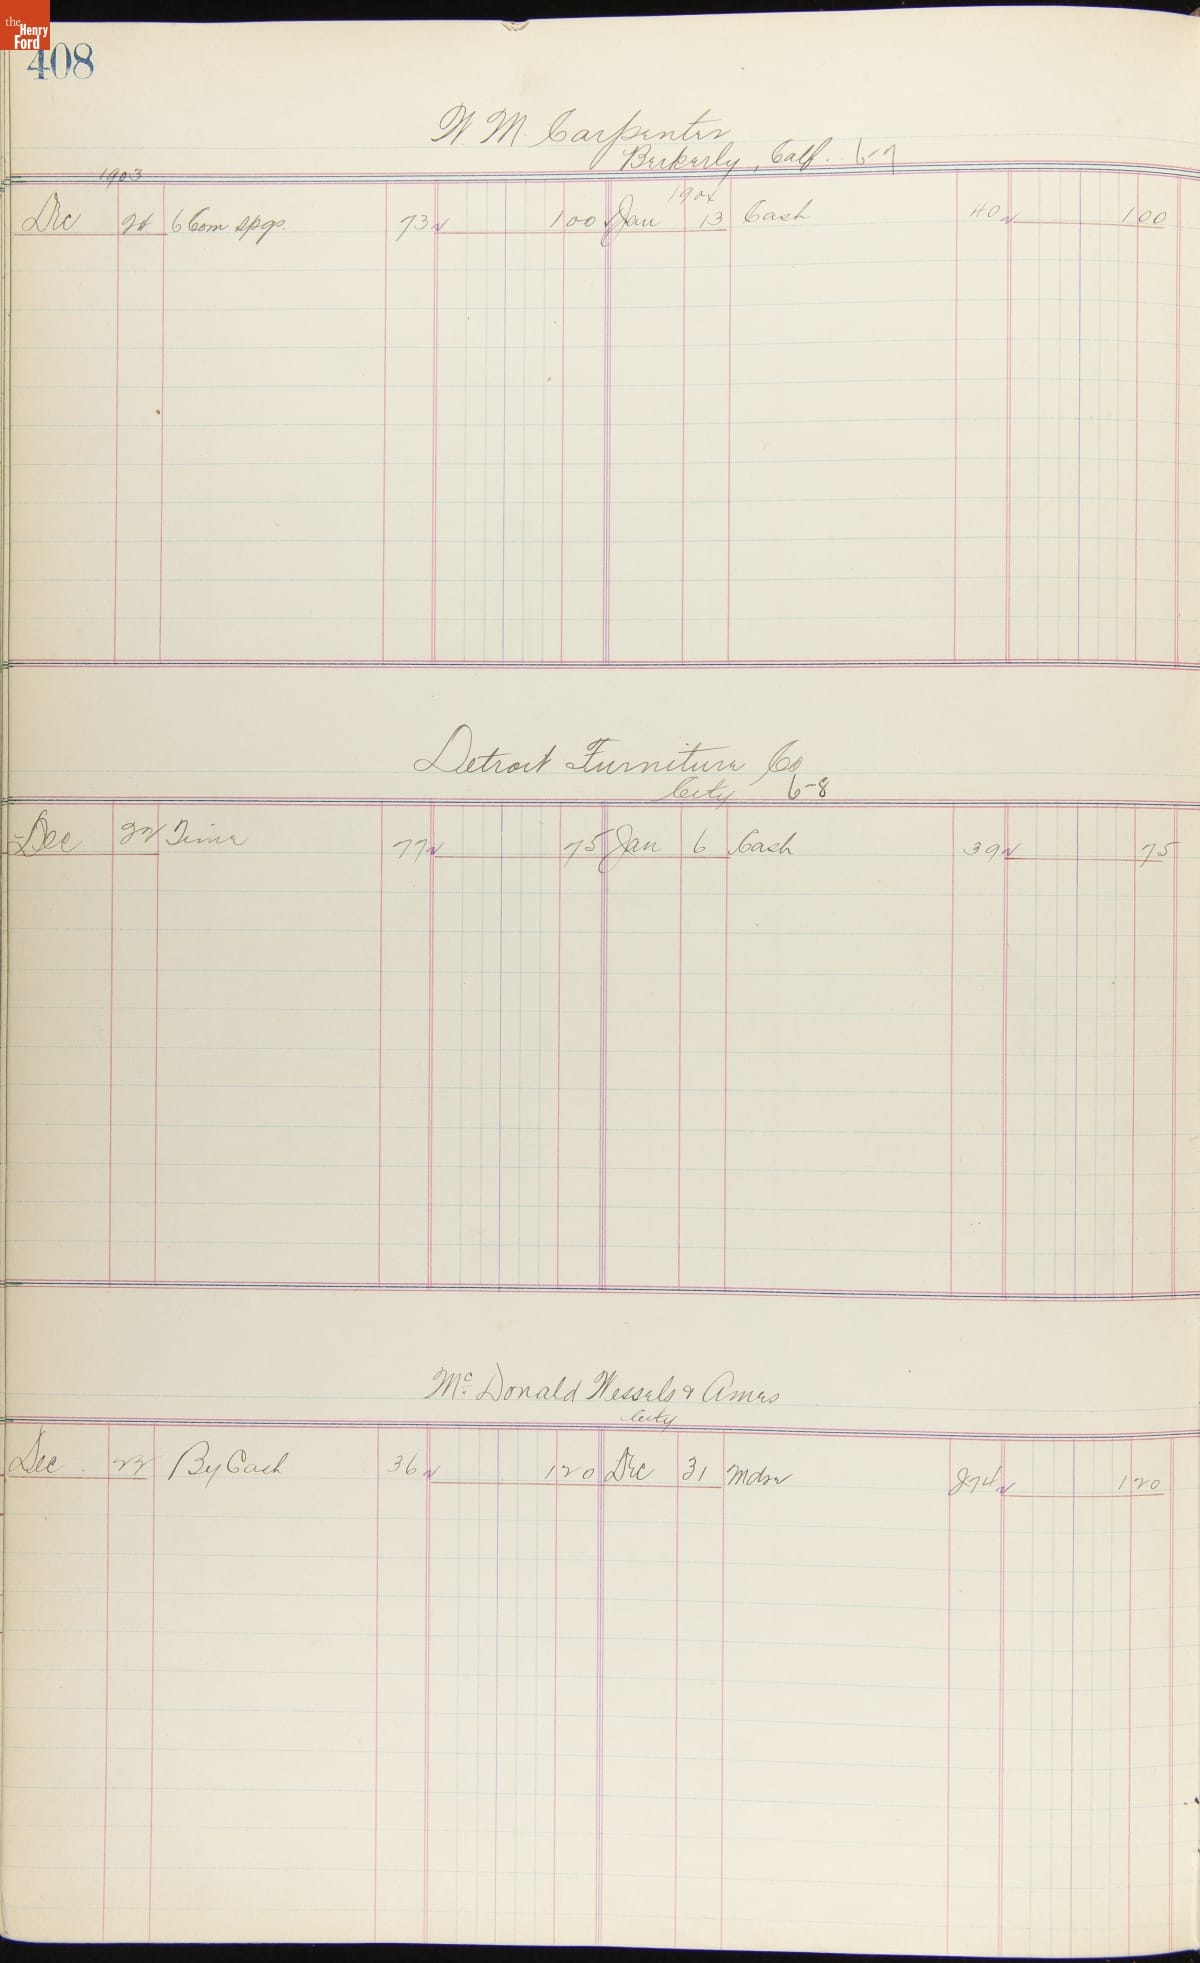 the
Henry
Ford
408
W M. Carpenter
Berkerly, Calf. 6-7
1903
1904
Dec 24 6 Com spgs. 73 100 Jan 13 Cash 40 100
Detroit Furniture Co
City 6-8
Dec 22 Time 77 75 Jan 6 Cash 39 75
Mc Donald Wessels & Ames
City
Dec 22 By Cash 36 120 Dec 31 Mdse 274 120